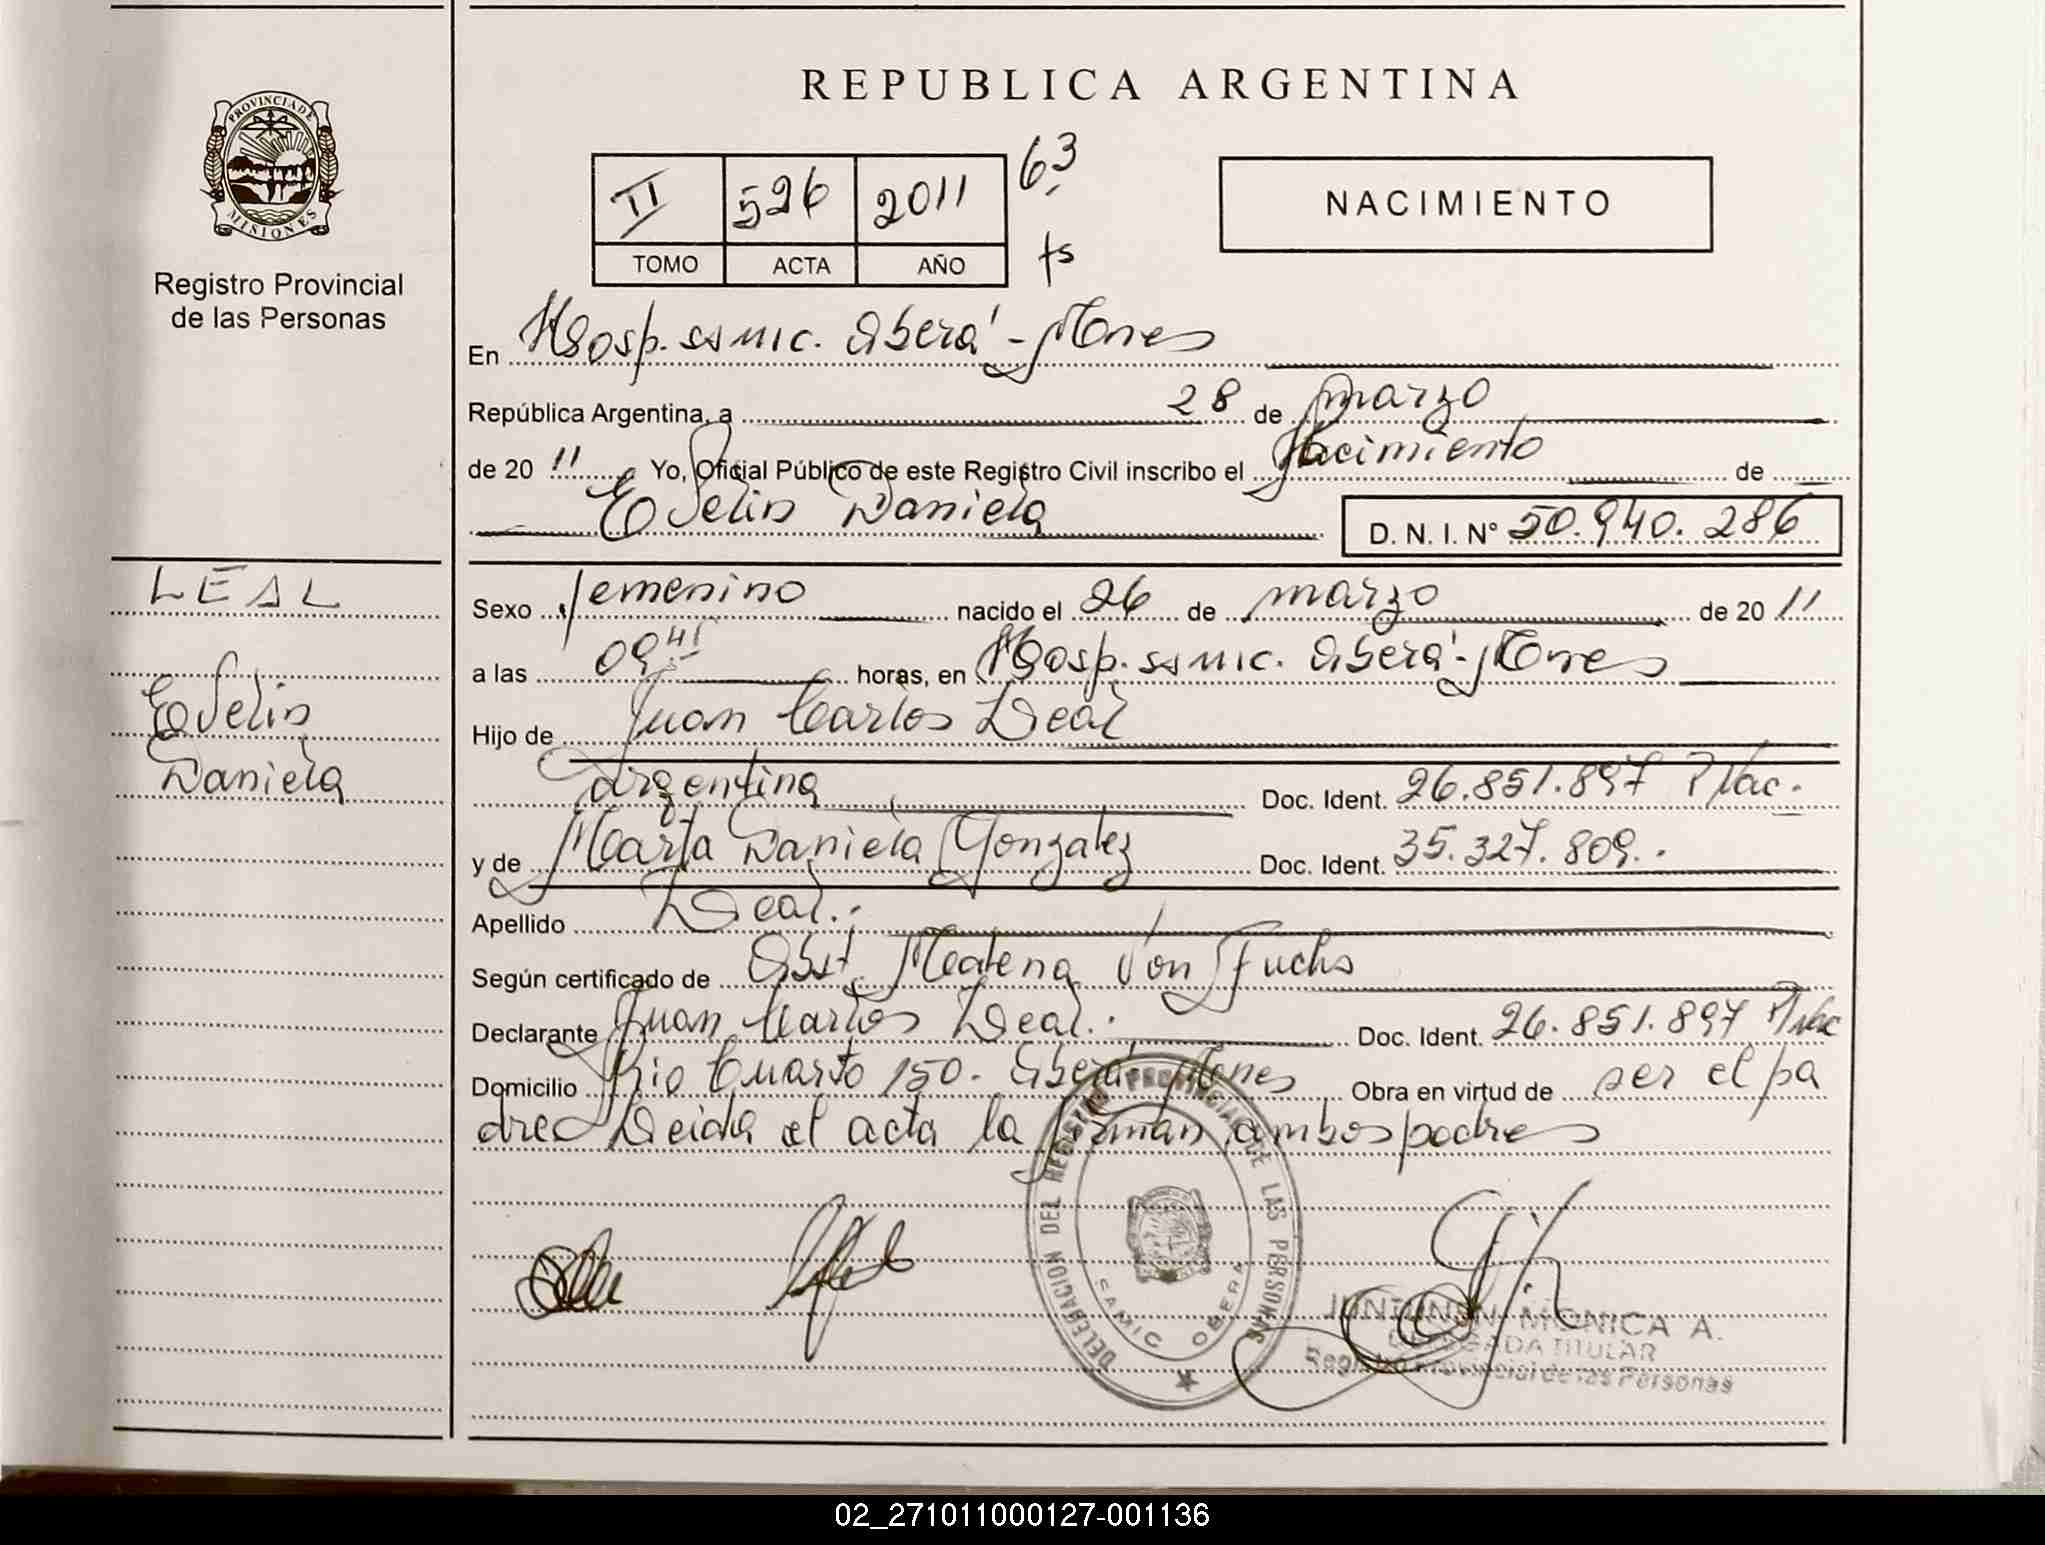 REPUBLICA ARGENTINA
PROVINCIA DE
MISIONES
Registro Provincial
de las Personas
II 526 2011 63
TOMO ACTA AÑO
NACIMIENTO
En Hosp. ssmic. Oberá - Mnes
República Argentina, a 28 de marzo
de 20 11 Yo, Oficial Público de este Registro Civil inscribo el Nacimiento de
Evelin Daniela D. N. I. N° 50.940.286
LEAL
Evelin
Daniela
Sexo femenino nacido el 26 de marzo de 20 11
a las 09 41 horas, en Hosp. ssmic. Oberá - Mnes
Hijo de Juan Carlos Leal
Argentina Doc. Ident. 26.851.897
y de Marta Daniela Gonzalez Doc. Ident. 35.327.809
Apellido Leal
Según certificado de Obst. Malena Von Fuchs
Declarante Juan Carlos Leal Doc. Ident. 26.851.897
Domicilio Rio Cuarto 150. Oberá Mnes Obra en virtud de ser el pa
dre Leida el acta la firman ambos padres
DELEGACION DEL REGISTRO PROVINCIAL DE LAS PERSONAS
SAMIC OBERA
MONICA A.
DELEGADA TITULAR
Registro Provincial de las Personas
02_271011000127-001136